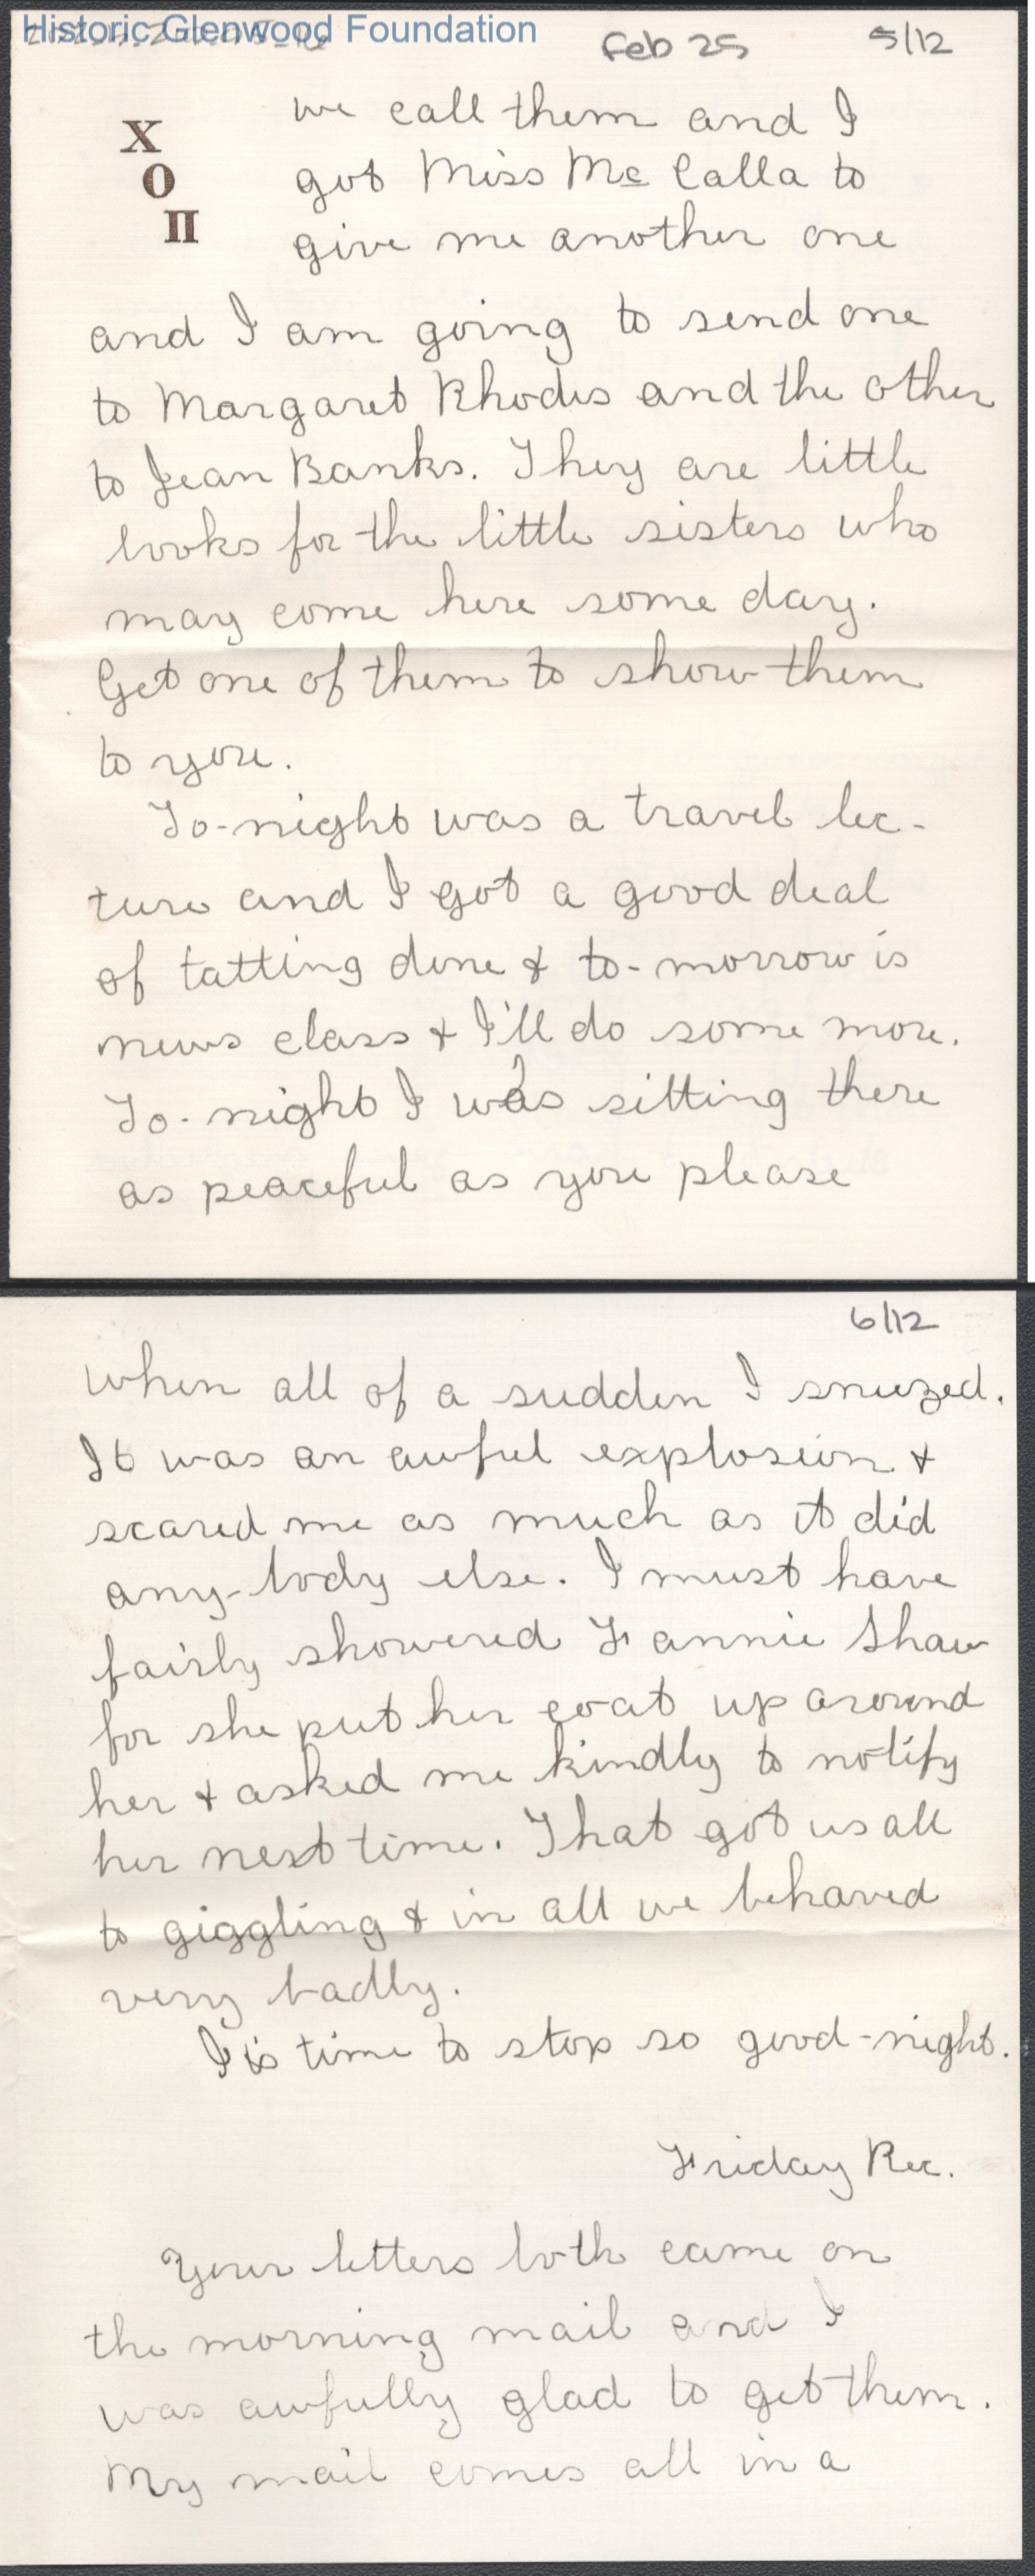 Historic Glenwood Foundation
Feb 25 5/12
X
O
II
we call them and I
got Miss Mc Calla to
give me another one
and I am going to send one
to Margaret Rhodes and the other
to Jean Banks. They are little
books for the little sisters who
may come here some day.
Get one of them to show them
to you.
To-night was a travel lec-
ture and I got a good deal
of tatting done & to-morrow is
news class & I'll do some more.
To-night I was sitting there
as peaceful as you please
6/12
when all of a sudden I sneezed.
It was an awful explosion &
scared me as much as it did
any-body else. I must have
fairly showered Fannie Shaw
for she put her coat up around
her & asked me kindly to notify
her next time. That got us all
to giggling & in all we behaved
very badly.
It is time to stop so good-night.
Friday Rec.
Your letters both came on
the morning mail and I
was awfully glad to get them.
My mail comes all in a